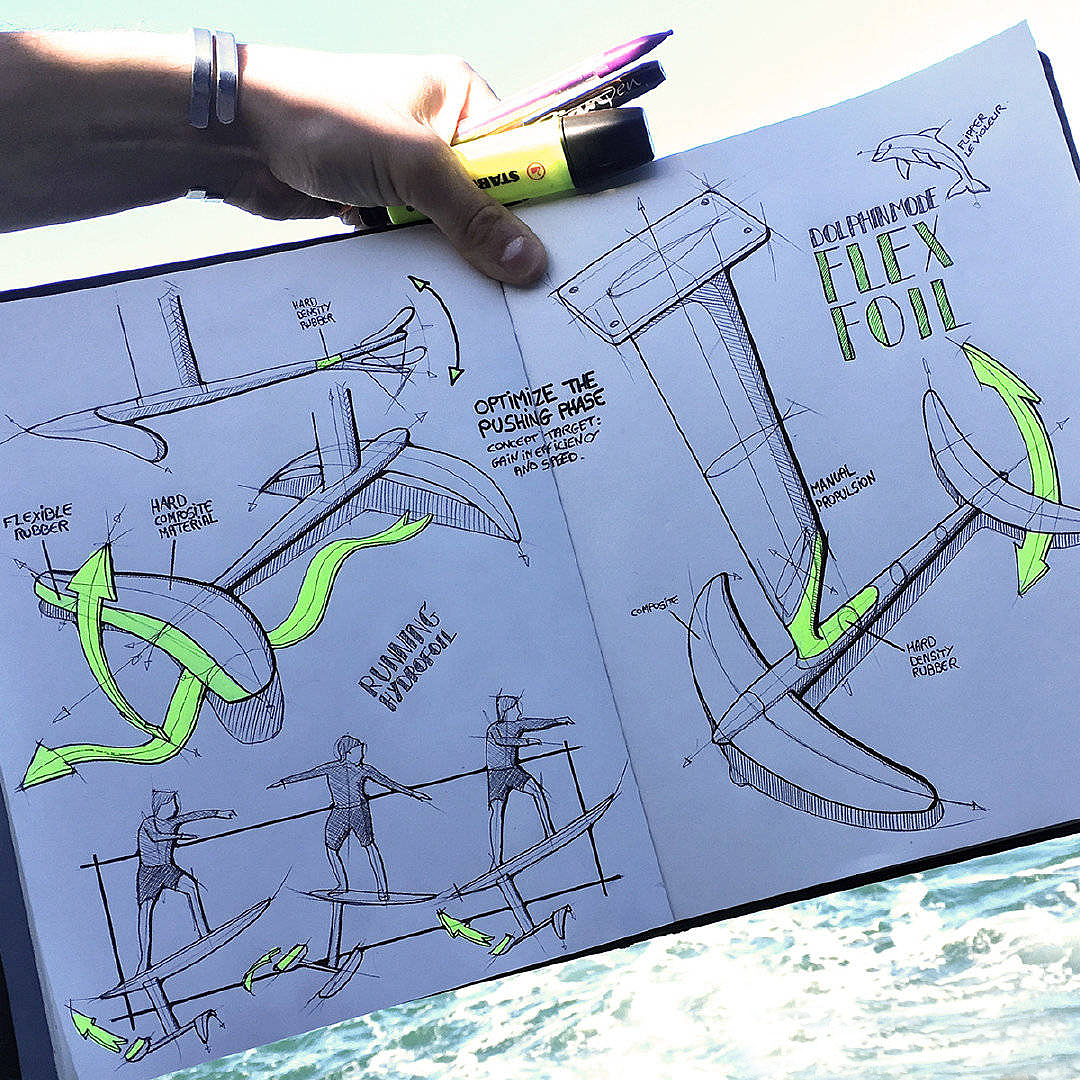 STAB
pen
FLIPPER
LE VIOLEUR
DOLPHIN MODE
FLEX
FOIL
HARD
DENSITY
RUBBER
OPTIMIZE THE
PUSHING PHASE
CONCEPT TARGET:
GAIN IN EFFICIENCY
AND SPEED.
FLEXIBLE
RUBBER
HARD
COMPOSITE
MATERIAL
RUNNING
HYDROFOIL
MANUAL
PROPULSION
COMPOSITE
HARD
DENSITY
RUBBER